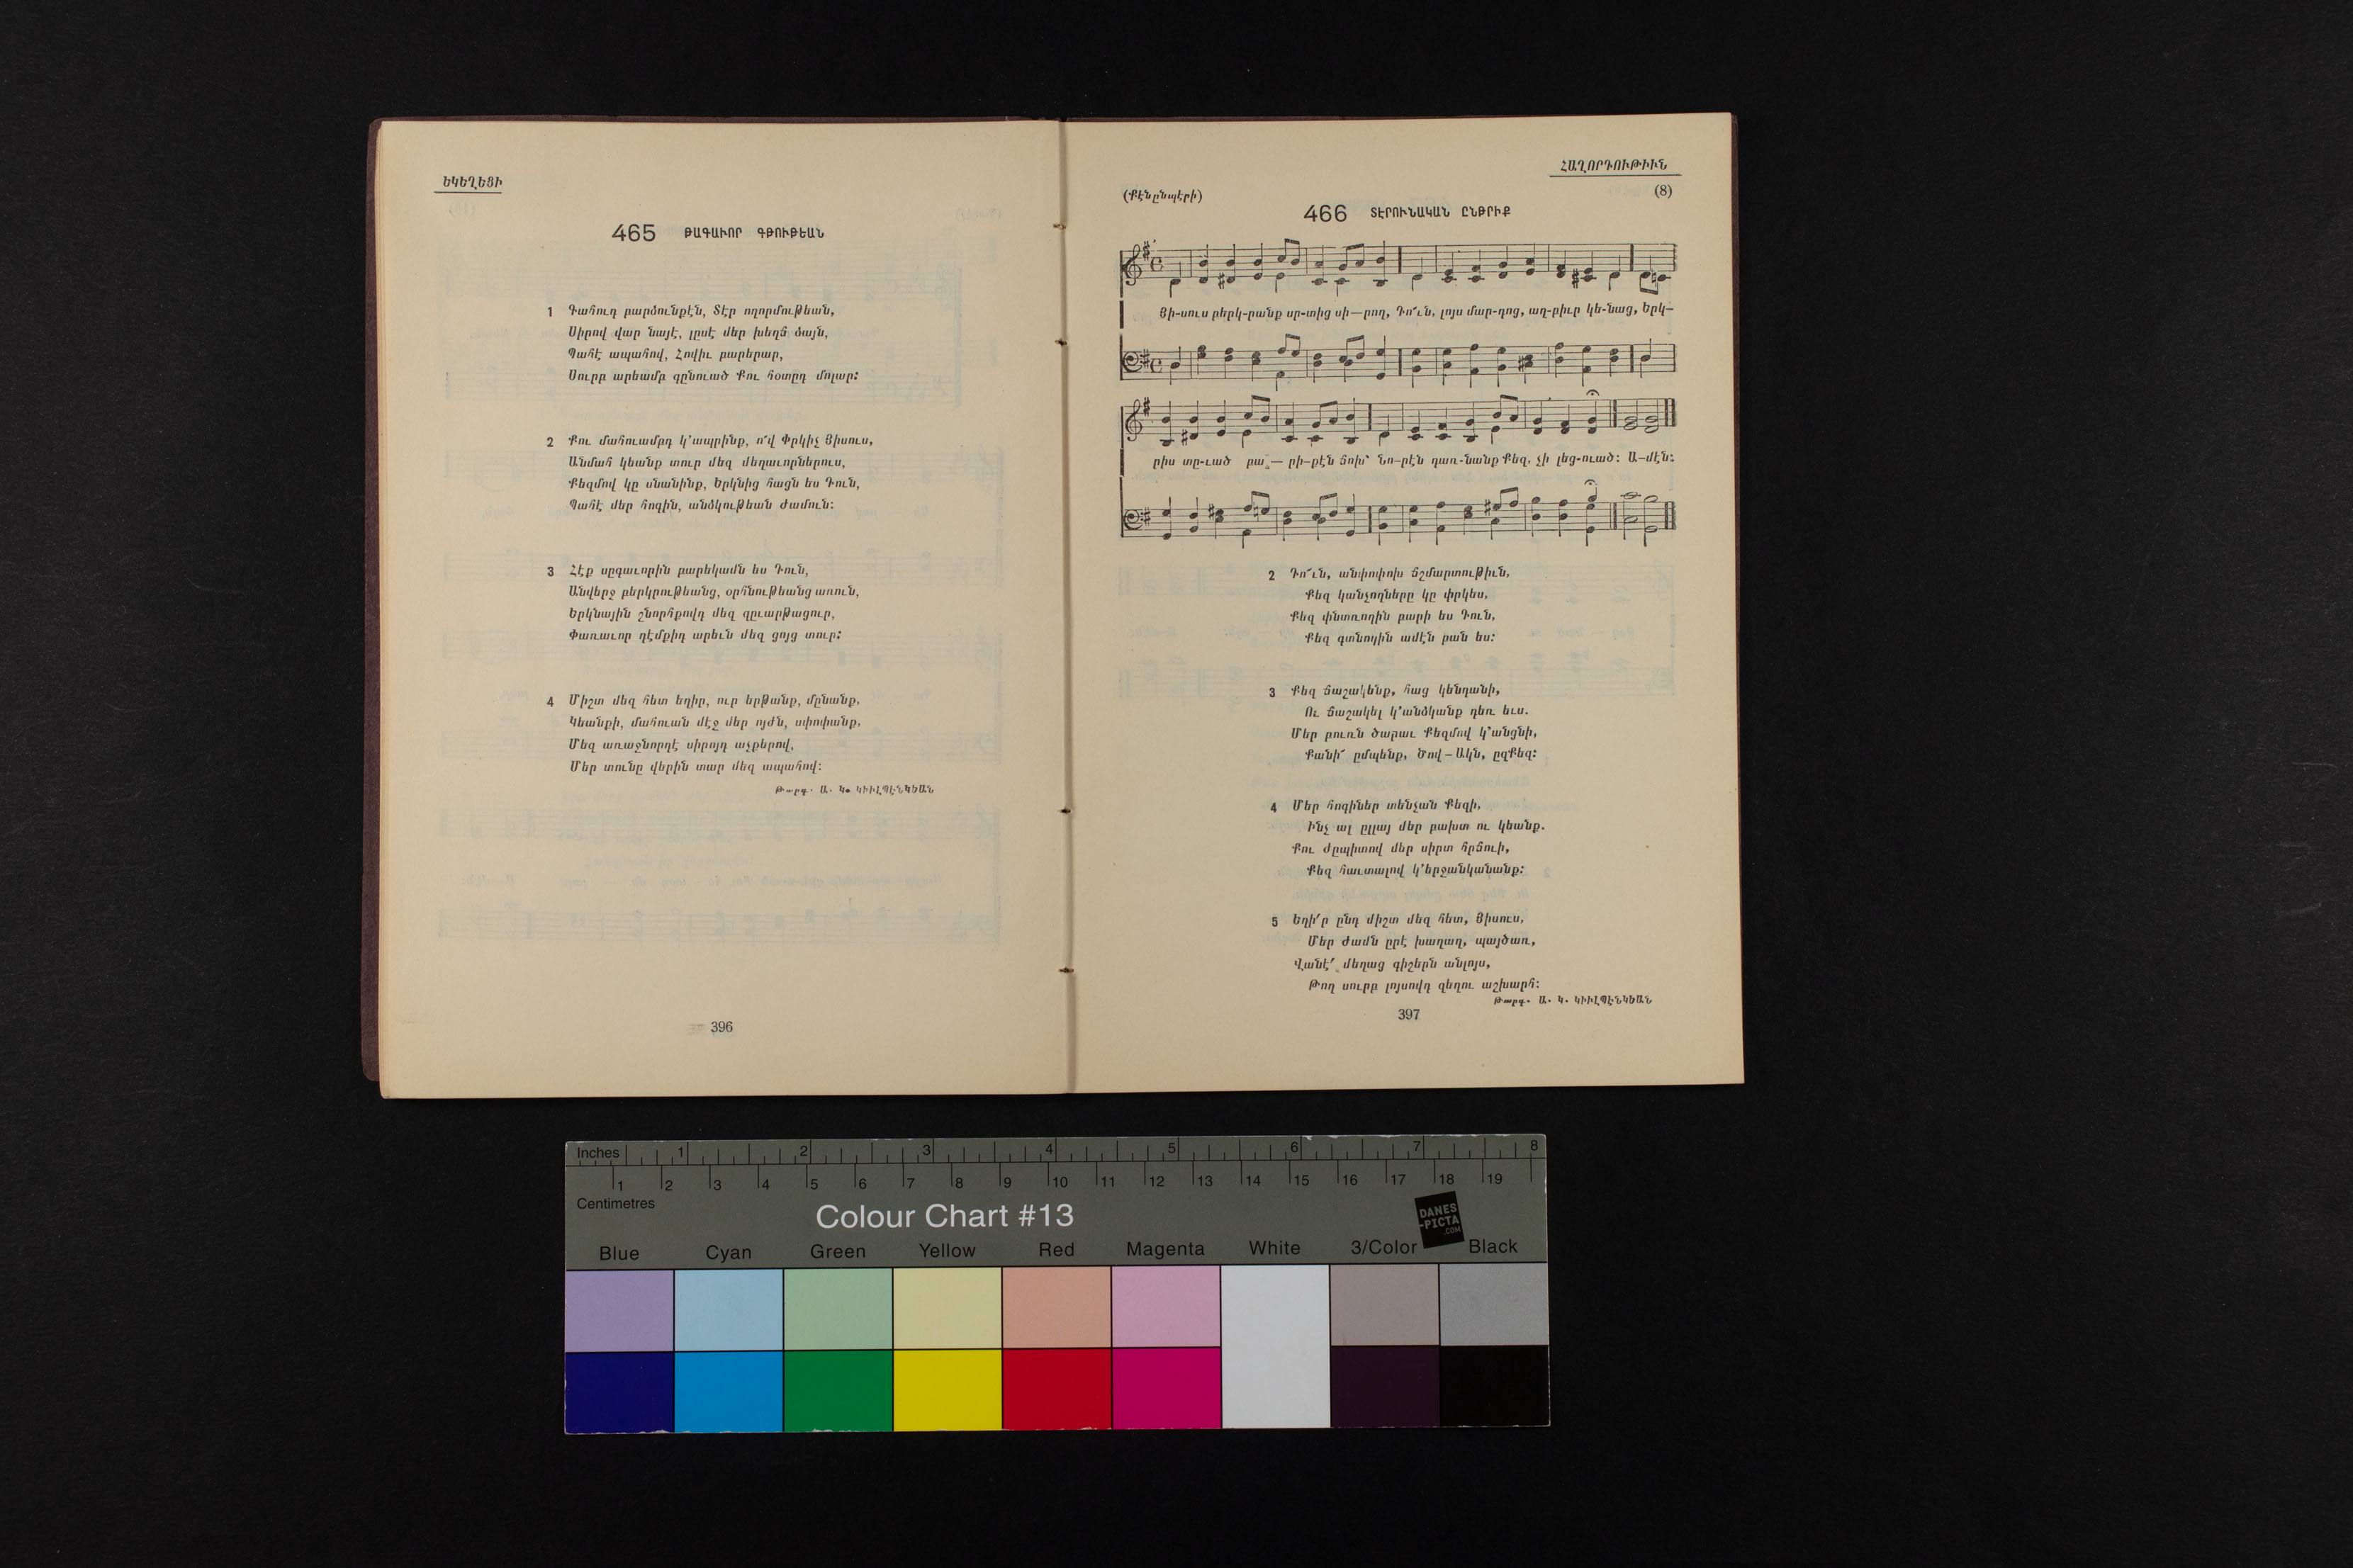 ԵԿԵՂԵՑԻ
465 ԹԱԳԱՒՈՐ ԳԹՈՒԹԵԱՆ
1 Գահուդ բարձունքէն, Տէր ողորմութեան,
Սիրով վար նայէ, լըսէ մեր խեղճ ձայն,
Պահէ ապահով, Հովիւ բարերար,
Սուրբ արեամբ գընուած Քու հօտըդ մոլար:
2 Քու մահուամբդ կ՚ապրինք, ո՜վ Փրկիչ Յիսուս,
Անմահ կեանք տուր մեզ մեղաւորներուս,
Քեզմով կը սնանինք, Երկնից հացն ես Դուն,
Պահէ մեր հոգին, անձկութեան ժամուն:
3 Հէք սըգաւորին բարեկամն ես Դուն,
Անվերջ բերկրութեանց, օրհնութեանց առուն,
Երկնային շնորհքովդ մեզ զըւարթացուր,
Փառաւոր դէմքիդ արեւն մեզ ցոյց տուր:
4 Միշտ մեզ հետ եղիր, ուր երթանք, մընանք,
Կեանքի, մահուան մէջ մեր ոյժն, սփոփանք,
Մեզ առաջնորդէ սիրոյդ աչքերով,
Մեր տունը վերին տար մեզ ապահով:
Թարգ. Ա. Կ. ԿԻՒԼՊԷՆԿԵԱՆ
396
ՀԱՂՈՐԴՈՒԹԻՒՆ
(Քէնընպէրի) (8)
466 ՏԷՐՈՒՆԱԿԱՆ ԸՆԹՐԻՔ
Յի-սուս բերկ-րանք սր-տից սի—րող, Դո՜ւն, լոյս մար-դոց, աղ-բիւր կե-նաց, Երկ-
րիս տը-ւած բա — րի-քէն ճոխ՝ Նո-րէն դառ-նանք Քեզ, չի լեց-ուած: Ա-մէն:
2 Դո՜ւն, անփոփոխ ճշմարտութիւն,
Քեզ կանչողները կը փրկես,
Քեզ փնտռողին բարի ես Դուն,
Քեզ գտնողին ամէն բան ես:
3 Քեզ ճաշակենք, հաց կենդանի,
Ու ճաշակել կ՚անձկանք դեռ եւս.
Մեր բուռն ծարաւ Քեզմով կ՚անցնի,
Քանի՜ ըմպենք, Ծով-Ակն, ըզՔեզ:
4 Մեր հոգիներ տենչան Քեզի,
Ինչ ալ ըլլայ մեր բախտ ու կեանք.
Քու ժըպիտով մեր սիրտ հրճուի,
Քեզ հաւտալով կ՚երջանկանանք:
5 Եղի՛ր ընդ միշտ մեզ հետ, Յիսուս,
Մեր ժամն ըրէ խաղաղ, պայծառ,
Վանէ՛ մեղաց գիշերն անլոյս,
Թող սուրբ լոյսովդ զեղու աշխարհ:
Թարգ. Ա. Կ. ԿԻՒԼՊԷՆԿԵԱՆ
397
Inches 1 2 3 4 5 6 7 8
1 2 3 4 5 6 7 8 9 10 11 12 13 14 15 16 17 18 19
Centimetres
Colour Chart #13
DANES
-PICTA
.COM
Blue Cyan Green Yellow Red Magenta White 3/Color Black